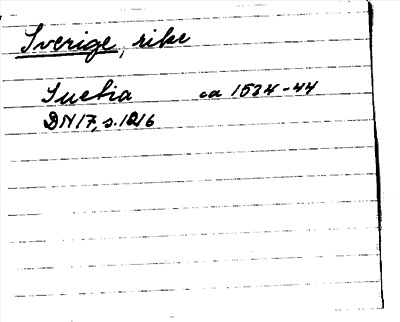 Sverige, rike
Suebia ca 1534-44
DN 17, s. 1216